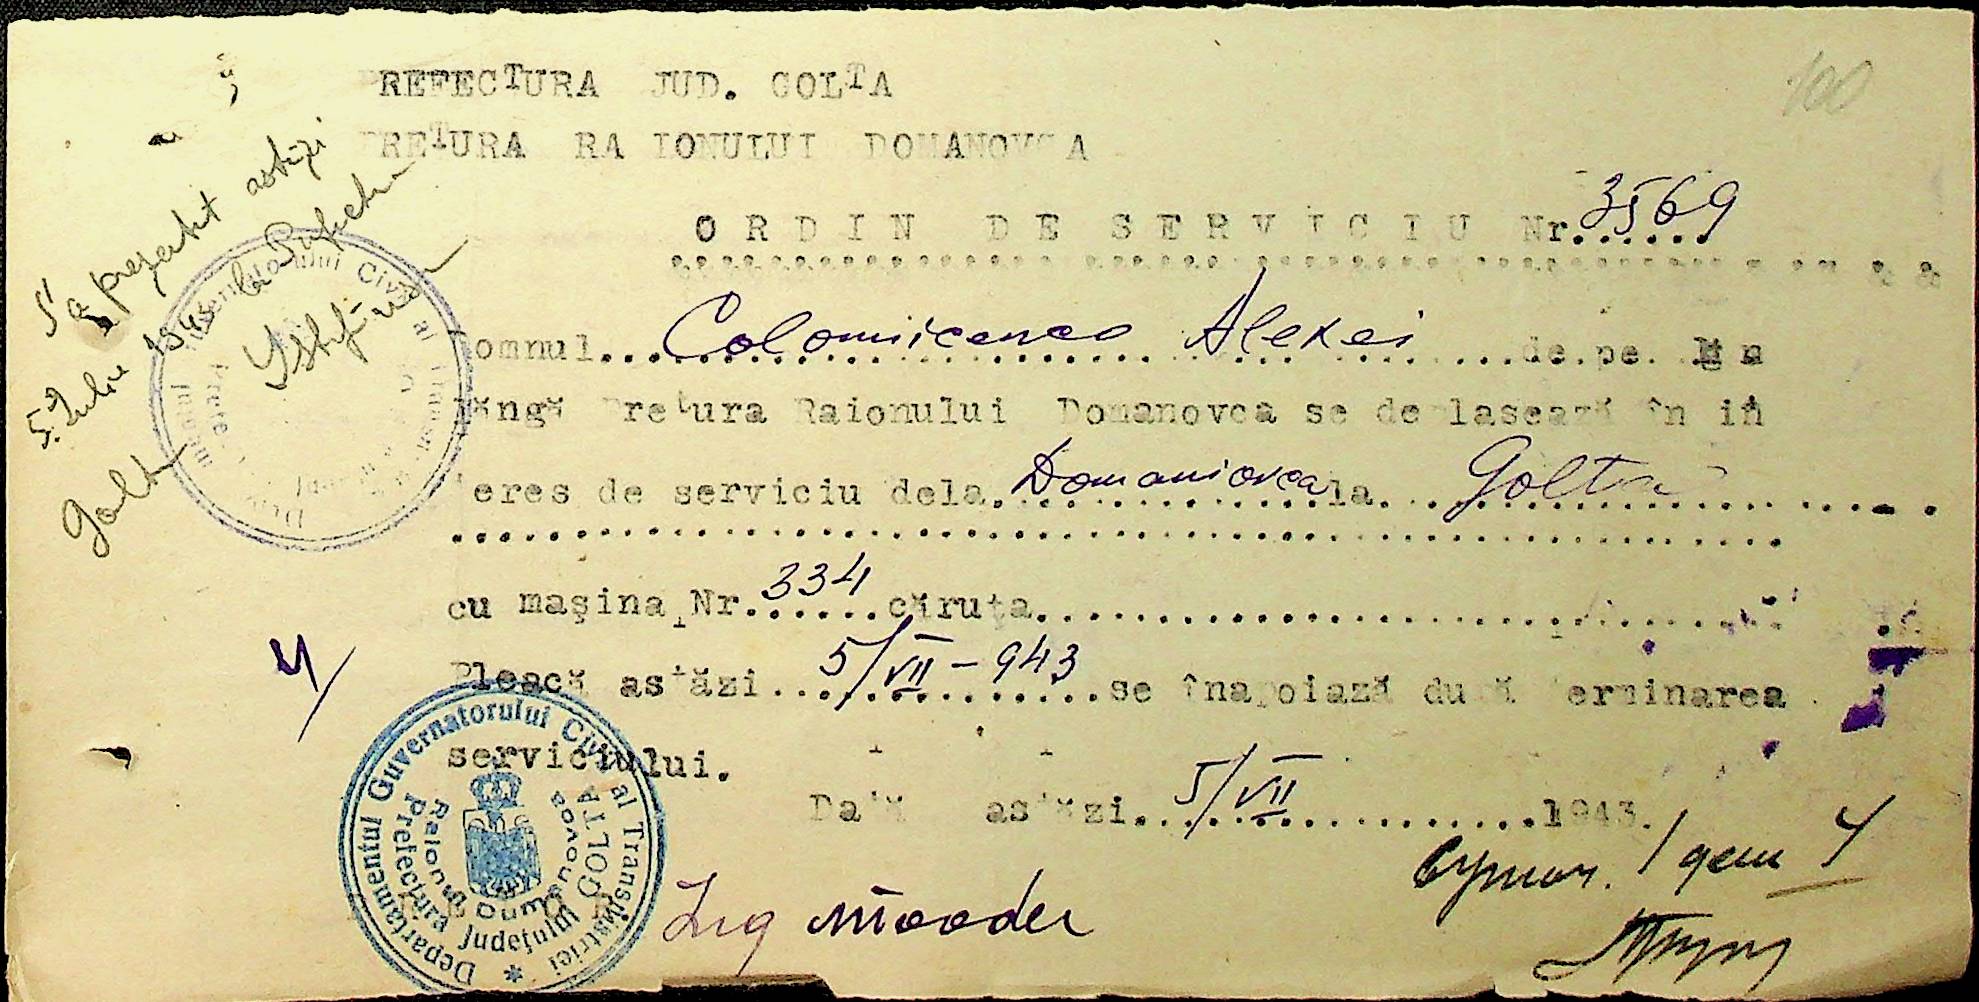 100
PREFECTURA JUD. GOLTA
PRETURA RAIONULUI DOMANOVCA
ORDIN DE SERVICIU Nr. 3569
Domnul Colomiicenco Alexei de pe
lângă Pretura Raionului Domanovca se deplasează în in
teres de serviciu dela Domaniovca la Golta
cu mașina Nr. 334 căruța
Pleacă astăzi 5/VII-943 se înapoiază după terminarea
serviciului.
Dată astăzi 5/VII 1943.
S'a prezentat astăzi
5. Iulie 1943 la Prefectura
Golta
4/
Departamentul Guvernatorului Civil al Transnistriei
Prefectura Județului GOLTA
Raionul Dumanovca
PRETOR
Ing